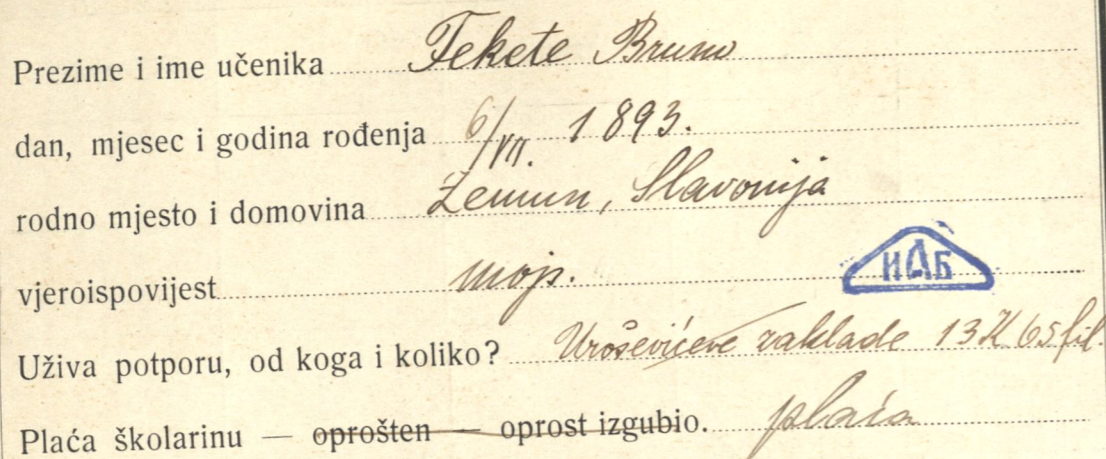 Prezime i ime učenika Fekete Bruno
dan, mjesec i godina rođenja 6/VII. 1893.
rodno mjesto i domovina Zemun, Slavonija
vjeroispovijest mojs.
ИАБ
Uživa potporu, od koga i koliko? Uroševićeve zaklade 13K 65 fil.
Plaća školarinu — oprošten — oprost izgubio. plaća